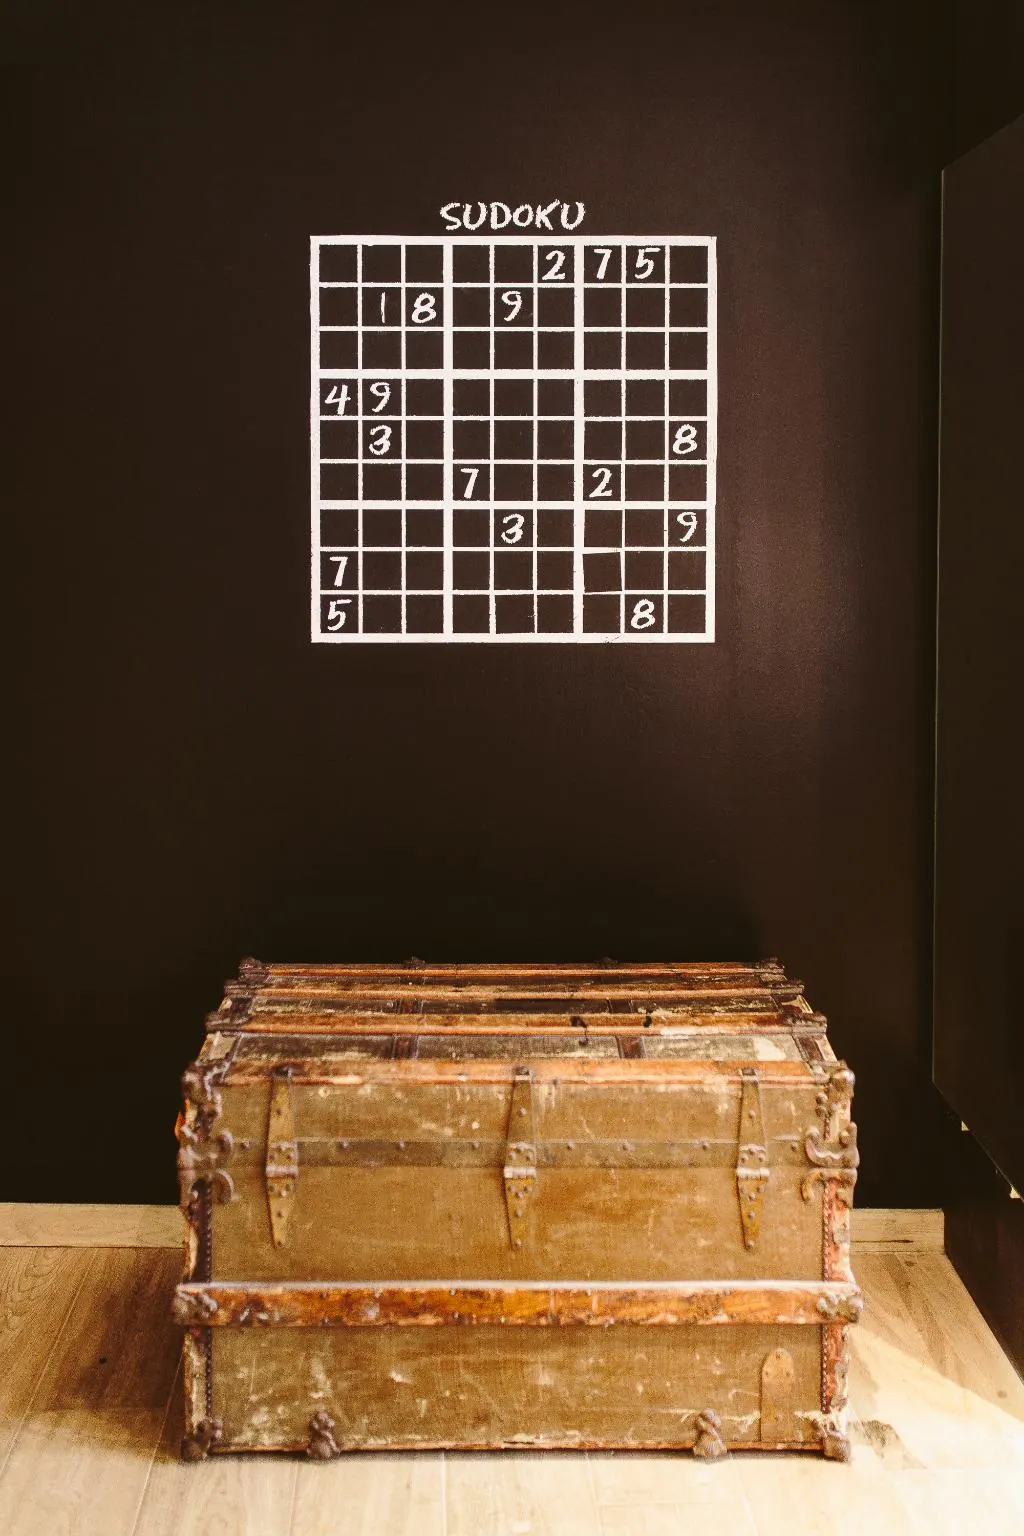 SUDOKU
2 7 5
1 8 9
4 9
3 8
7 2
3 9
7
5 8